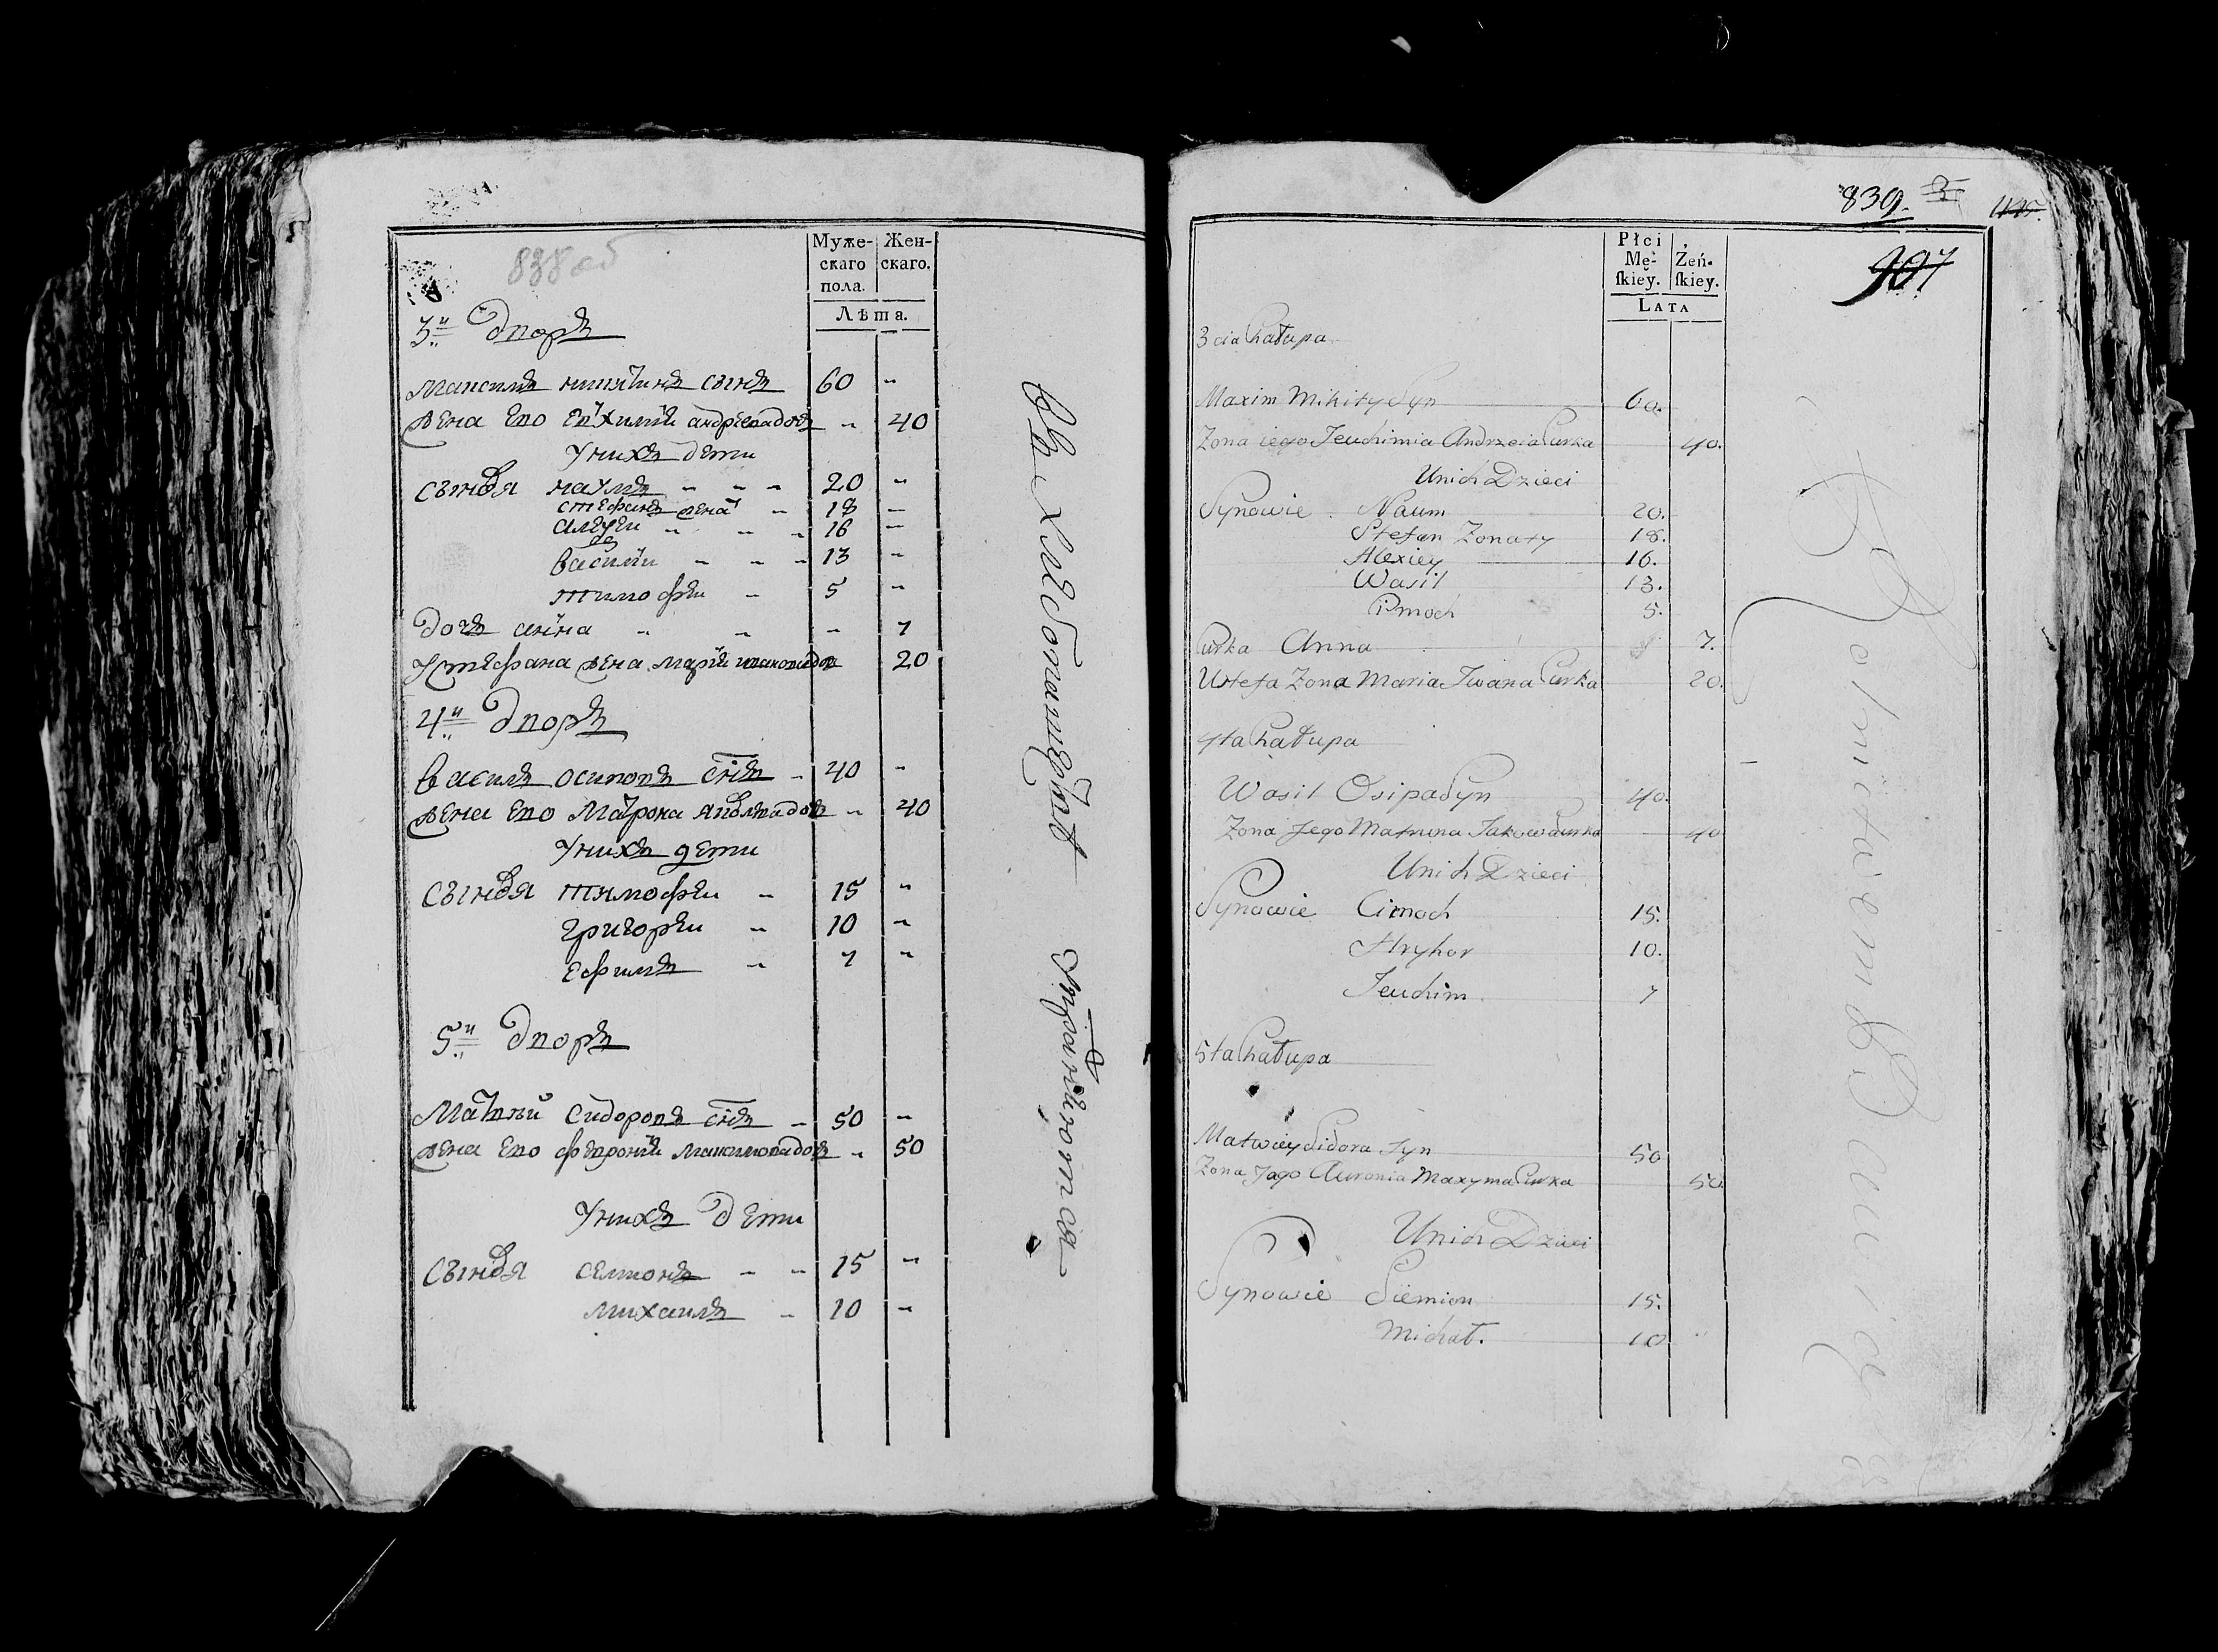 838 об
Муже-
скаго
пола.
Жен-
скаго.
Лѣта.
3й дворъ
Максимъ никитинъ сынъ 60 "
жена его евхимiя андреевадочъ " 40
Унихъ дети
сыновья наумъ " " " 20 "
стефанъ жена " 18 "
алеѯеи " " " 16 "
василiи " " " 13 "
тимофеи " 5 "
дочъ анна " " " 7
Устефана жена марiя 20
4й дворъ
василь осиповъ снъ " 40 "
жена его Матрона яковлевадочъ " 40
Унихъ дети
сыновья тимофеи " 15 "
григореи " 10 "
ефимъ " 7 "
5й дворъ
Матвѣй сидоровъ снъ " 50 "
жена его февронiя максимовадочъ " 50
Унихъ дети
сыновья семионъ " " 15 "
михаилъ " 10 "
въ хлебопашествѣ упражняются
839.
907
Płci
Mę-
ſkiey.
Żeń-
ſkiey.
LATA
3cia Chałupa
Maxim Mikity Syn 60.
Zona iego Jeuchimia Andrzeia Curka 40.
Unich Dzieci
Synowie Naum 20.
Stefan Zonaty 18.
Alexiey 16.
Wasil 13.
Cimoch 5.
Curka Anna 7.
Ustefa Zona Maria Iwana Curka 20.
4ta Chałupa
Wasil Osipa Syn 40.
Zona Jego Matruna Jakowa Curka 40
Unich Dzieci
Synowie Cimoch 15.
Hryhor 10.
Jeuchim 7
5ta Chałupa
Matwiey Sidora Syn 50
Zona Jego Auronia Maxyma Curka 50
Unich Dzieci
Synowie Siemion 15.
Michał. 10